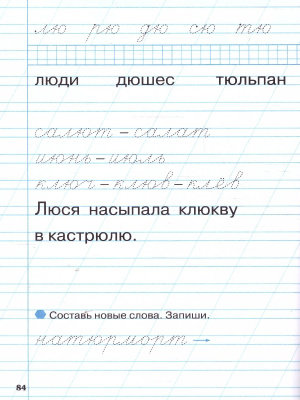 лю рю дю сю тю
люди дюшес тюльпан
салют – салат
июнь – июль
ключ – клюв – клёв
Люся насыпала клюкву
в кастрюлю.
Составь новые слова. Запиши.
натюрморт →
84